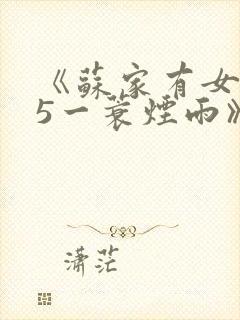 《蘇家有女
5一蓑煙雨》
瀟茫